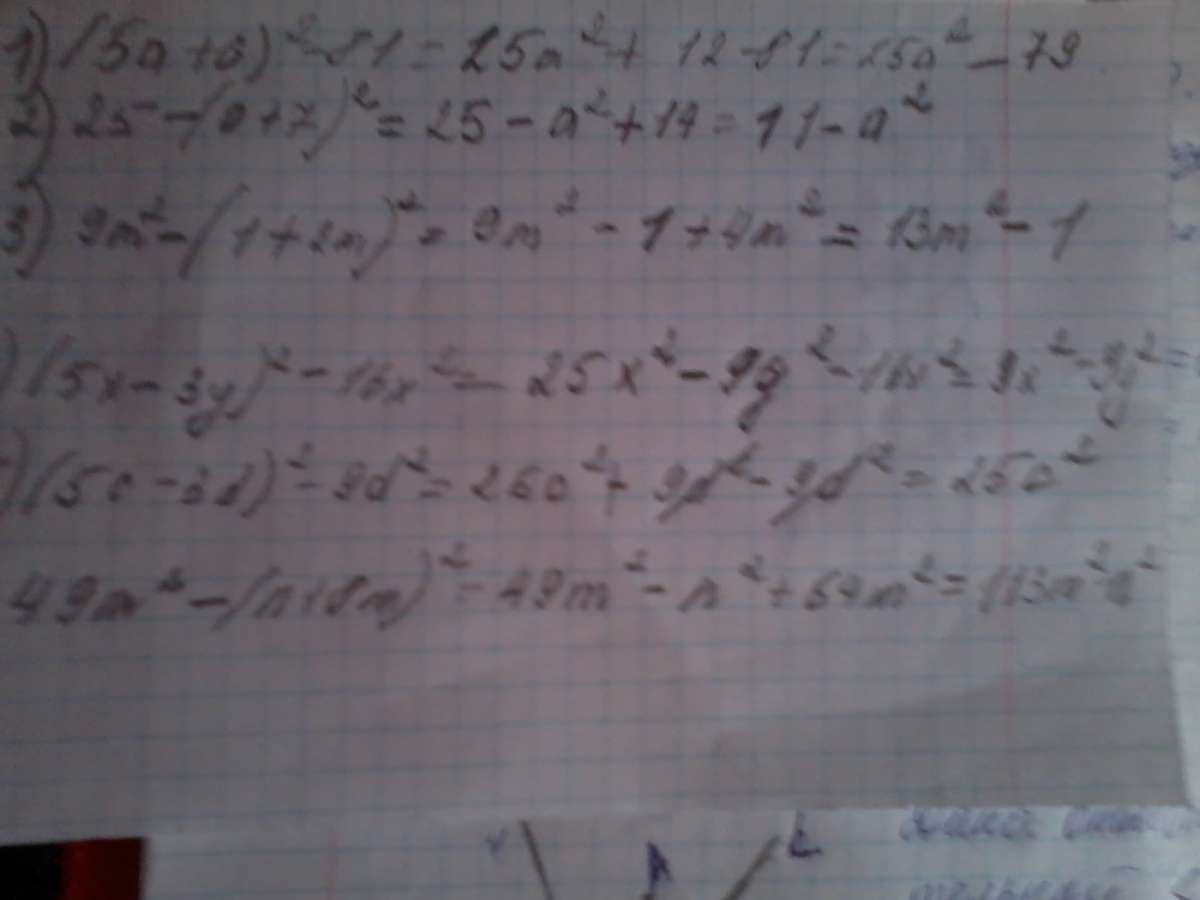 1) (5a+6)² - 81 = 25a² + 12 - 81 = 25a² - 79
2) 25 - (a+7)² = 25 - a² + 14 = 11 - a²
3) 9m² - (1+2m)² = 9m² - 1 + 4m² = 13m² - 1
) (5x - 3y)² - 16x² = 25x² - 9y² - 16x² = 9x² - 9y² =
) (5c - 3d)² - 9d² = 25c² + 9d² - 9d² = 25c²
49m² - (n+8m)² = 49m² - n² + 64m² = 113m² n²